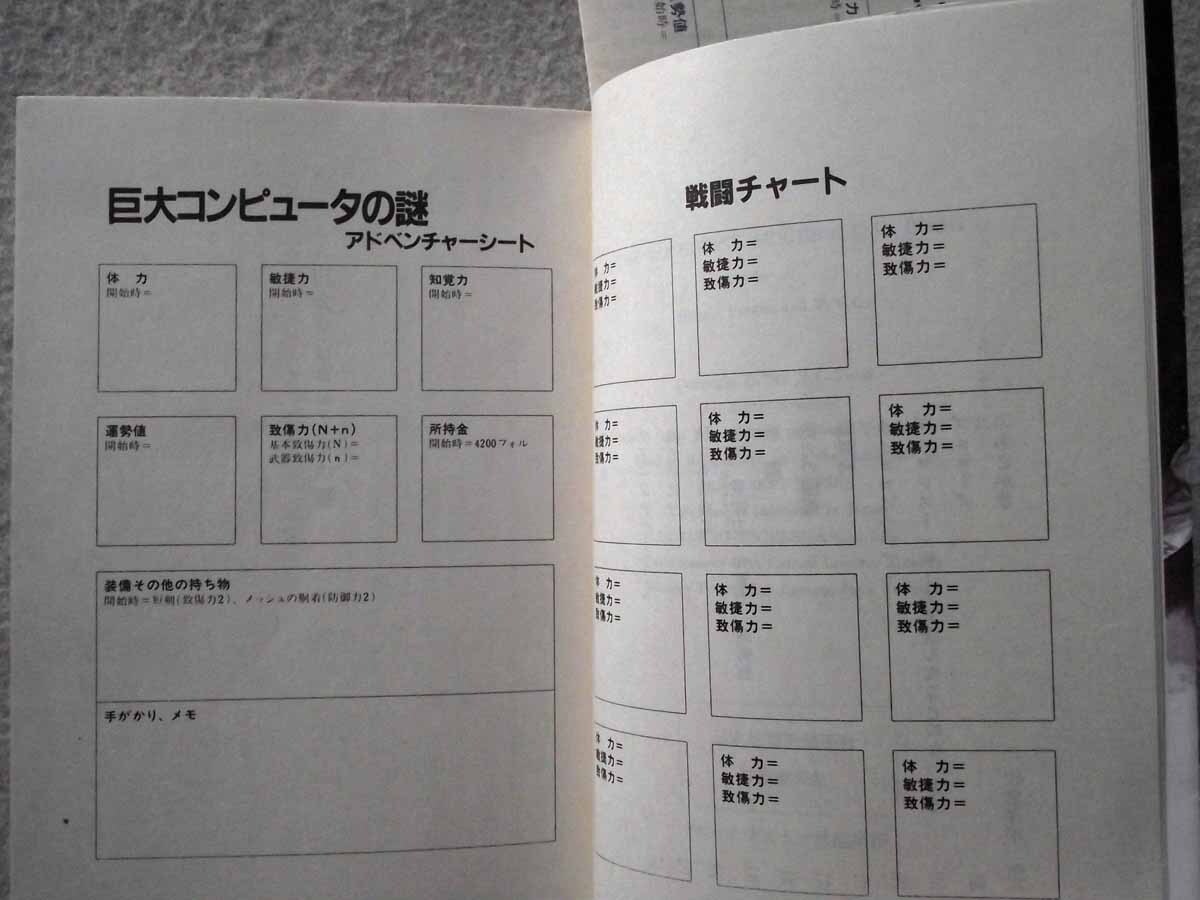 巨大コンピュータの謎
アドベンチャーシート
体　力
開始時＝
敏捷力
開始時＝
知覚力
開始時＝
運勢値
開始時＝
致傷力(N＋n)
基本致傷力(N)＝
武器致傷力(n)＝
所持金
開始時＝4200フォル
装備その他の持ち物
開始時＝短剣(致傷力2)、メッシュの胴着(防御力2)
手がかり、メモ
戦闘チャート
力＝
捷力＝
傷力＝
体　力＝
敏捷力＝
致傷力＝
体　力＝
敏捷力＝
致傷力＝
体　力＝
敏捷力＝
致傷力＝
体　力＝
敏捷力＝
致傷力＝
体　力＝
敏捷力＝
致傷力＝
体　力＝
敏捷力＝
致傷力＝
体　力＝
敏捷力＝
致傷力＝
体　力＝
敏捷力＝
致傷力＝
体　力＝
敏捷力＝
致傷力＝
体　力＝
敏捷力＝
致傷力＝
体　力＝
敏捷力＝
致傷力＝
勢値
始時＝
力